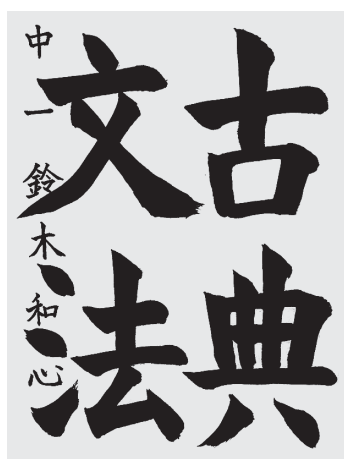 古典
文法
中一 鈴木和心